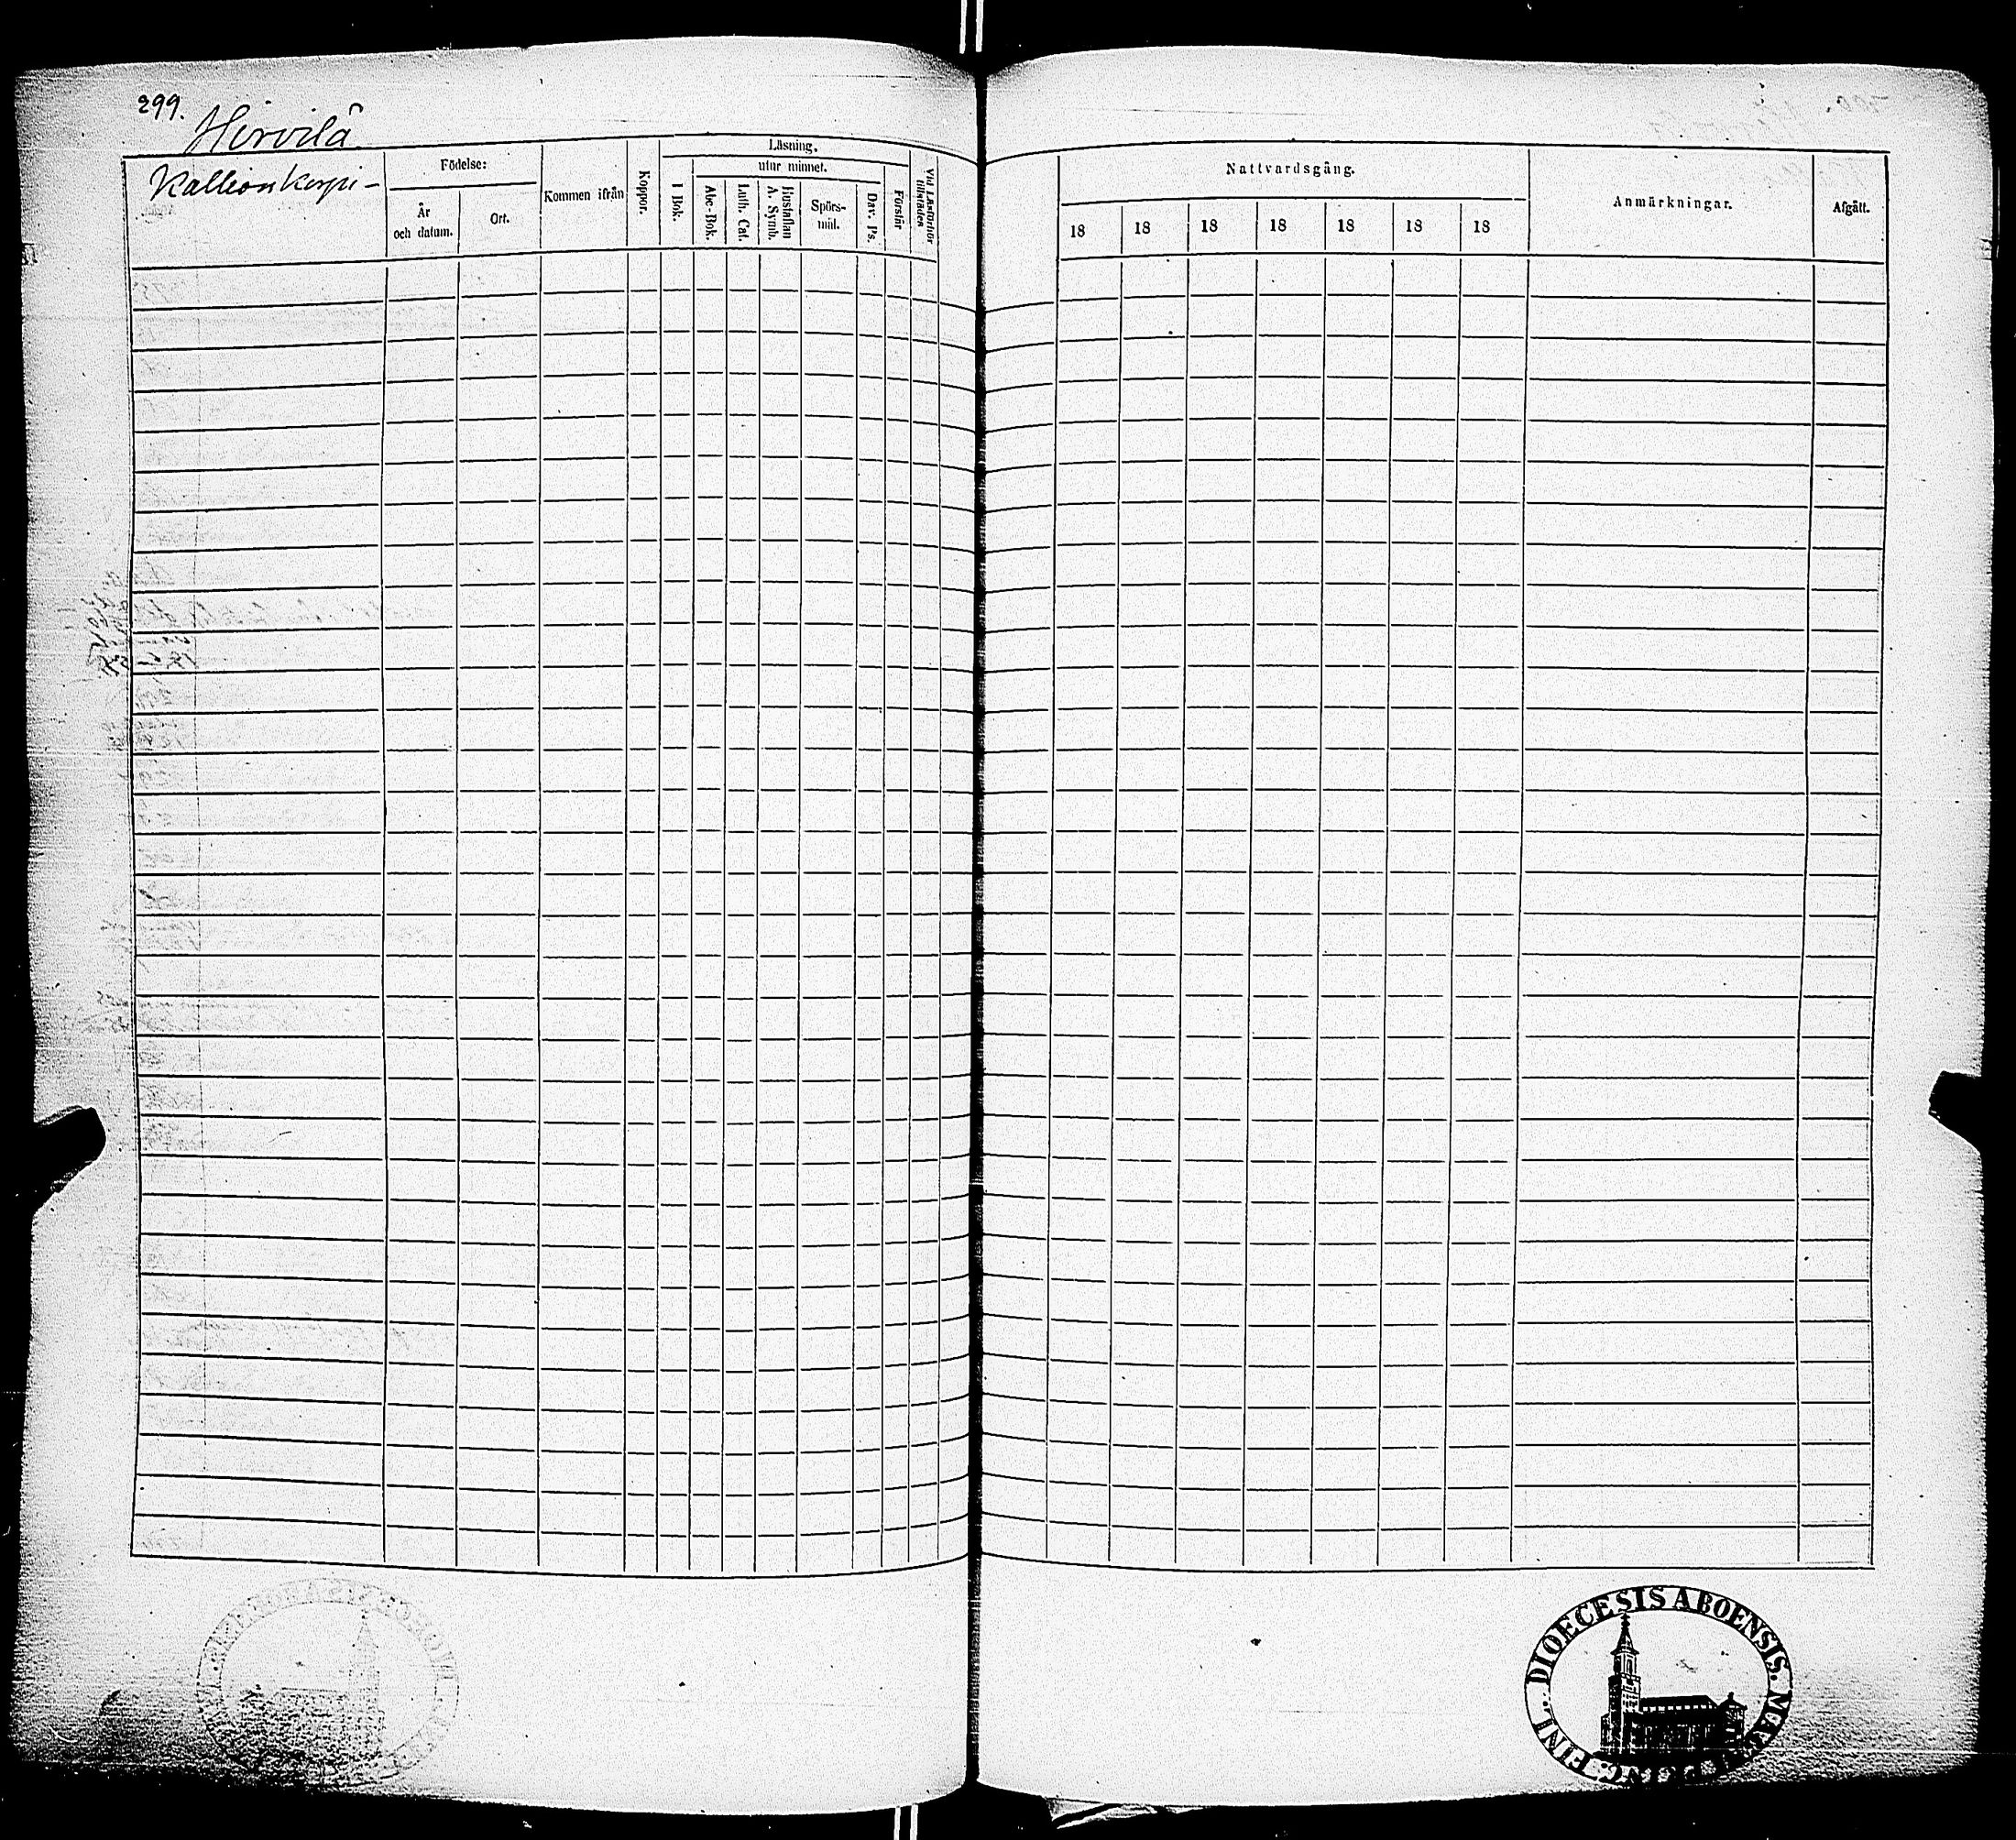 299.
Hirvilä
Kallionkorpi-
Födelse:
År
och datum.
Ort.
Kommen ifrån
Koppor.
Läsning.
utur minnet.
I Bok.
Abc-Bok.
Luth. Cat.
Hustaflan
A. Symb.
Spörs-
mål.
Dav. Ps.
Förstår
Vid Läsförhör
tillstädes
Nattvardsgång.
18 18 18 18 18 18 18
Anmärkningar.
Afgått.
DIOECESIS ABOENSIS.
FINL.